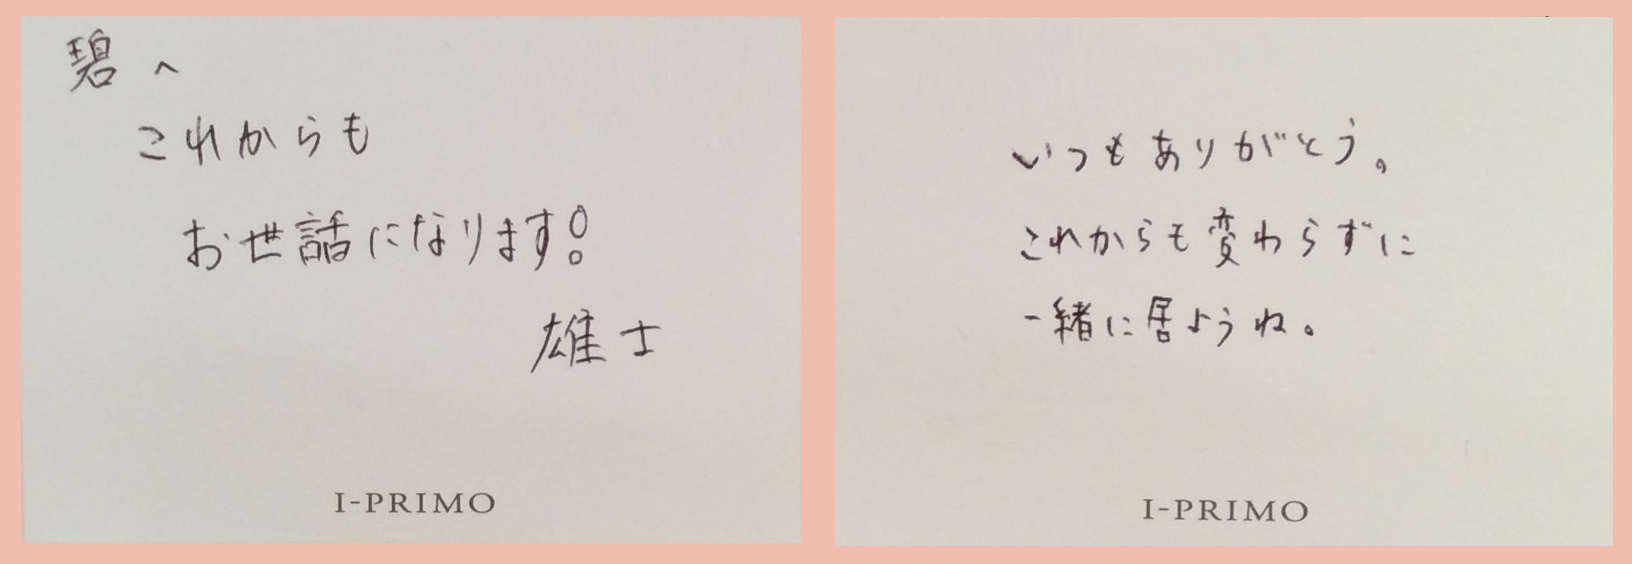 碧へ
これからも
お世話になります!
雄士
I-PRIMO
いつもありがとう。
これからも変わらずに
一緒に居ようね。
I-PRIMO